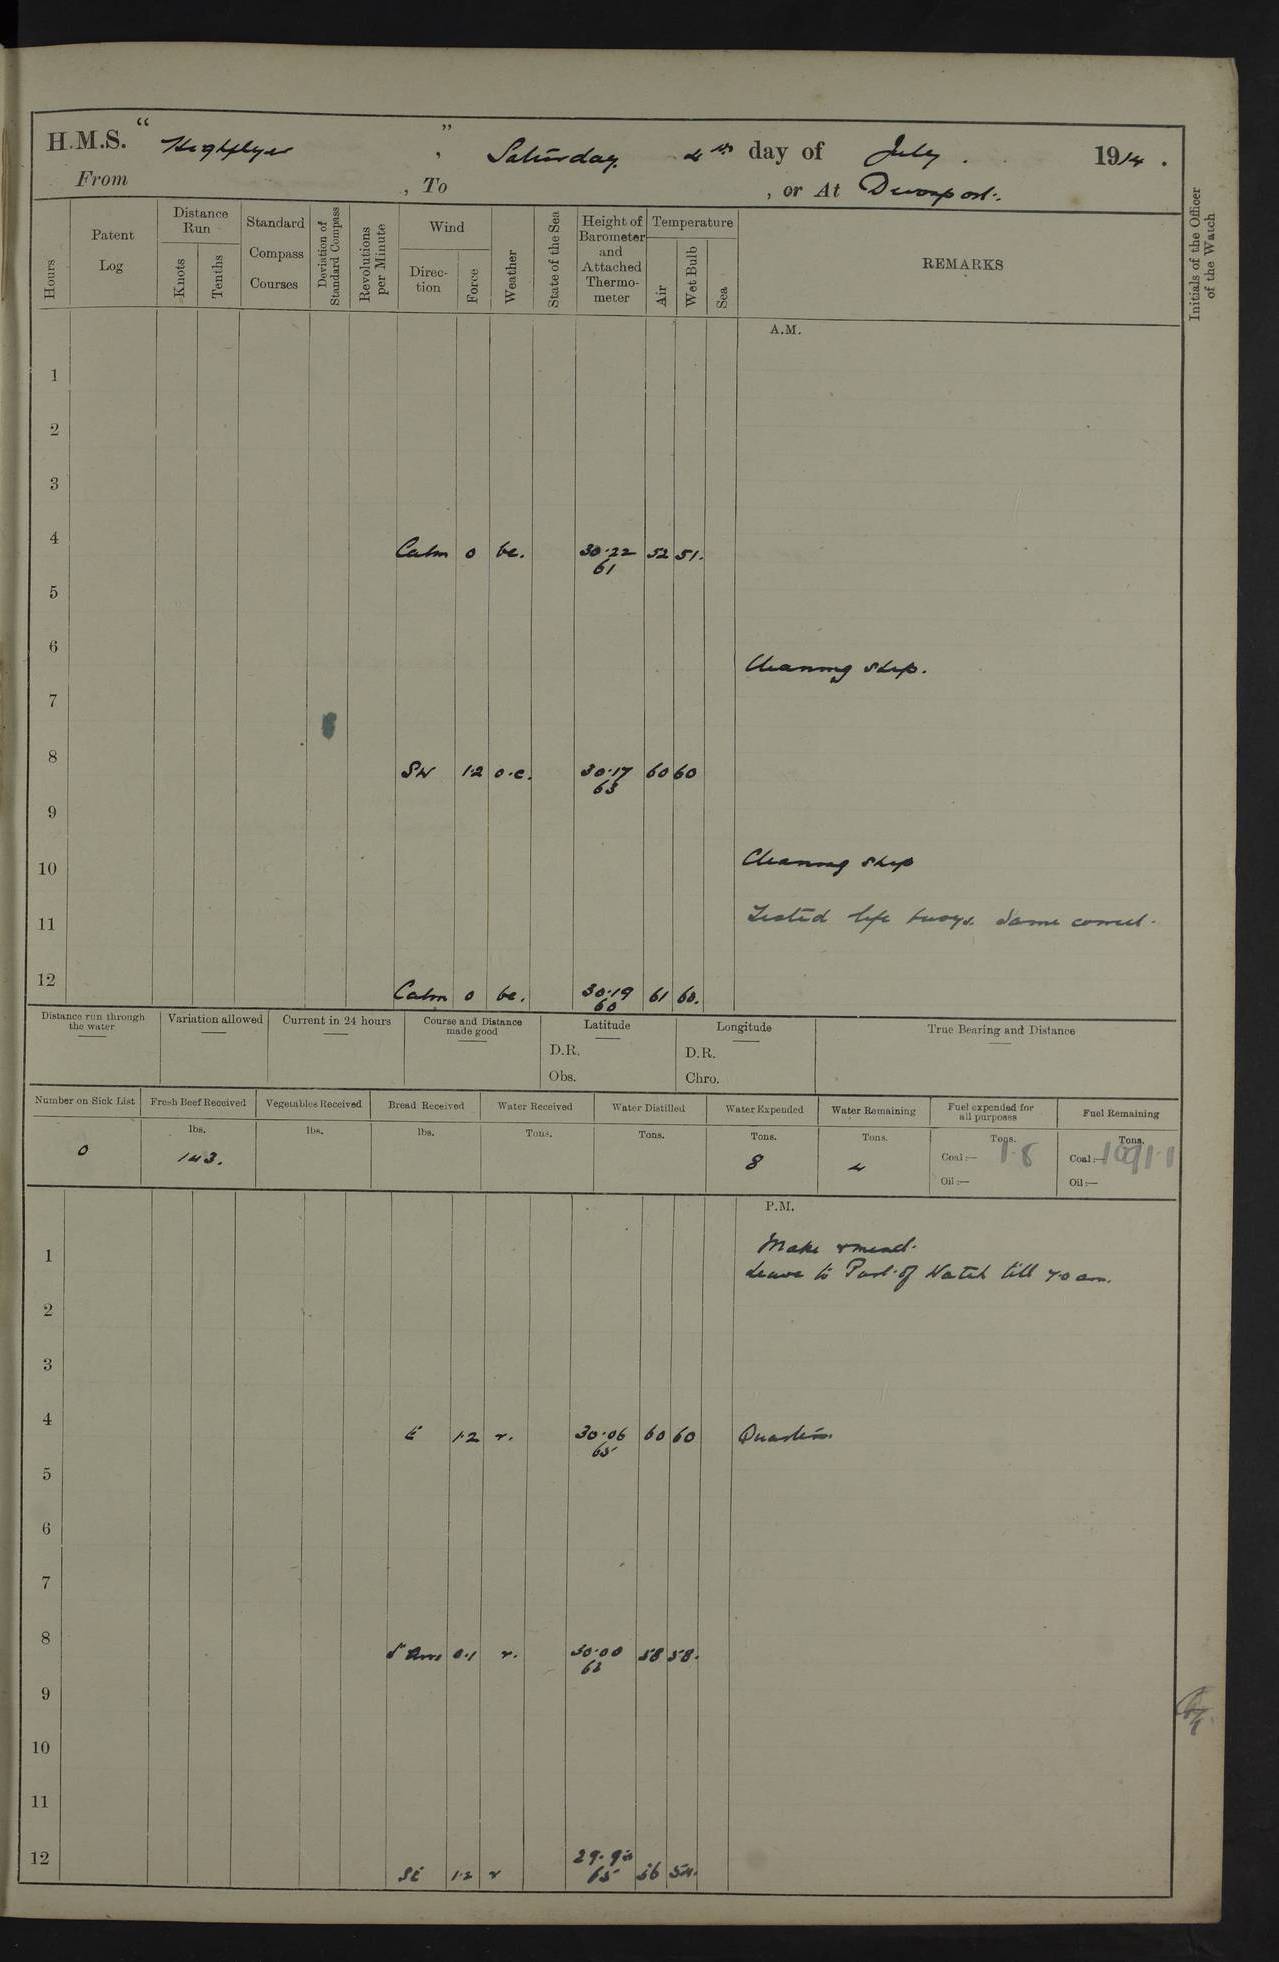 H.M.S. " Highflyer " , Saturday 4th day of July . 1914 .
From , To , or At Devonport.
Hours
Patent Log
Distance Run
Knots
Tenths
Standard Compass Courses
Deviation of Standard Compass
Revolutions per Minute
Wind
Direc-tion
Force
Weather
State of the Sea
Height of Barometer and Attached Thermo-meter
Temperature
Air
Wet Bulb
Sea
REMARKS
Initials of the Officer of the Watch
A.M.
1
2
3
4 Calm 0 bc. 30.22 52 51.
61
5
6
Cleaning ship.
7
8 SW 1.2 o.c. 30.17 60 60
63
9
10 Cleaning ship
11 Tested life buoys. Same correct.
12 Calm 0 bc. 30.19 61 60.
60
Distance run through the water
Variation allowed
Current in 24 hours
Course and Distance made good
Latitude
D.R.
Obs.
Longitude
D.R.
Chro.
True Bearing and Distance
Number on Sick List
0
Fresh Beef Received
lbs.
143.
Vegetables Received
lbs.
Bread Received
lbs.
Water Received
Tons.
Water Distilled
Tons.
Water Expended
Tons.
8
Water Remaining
Tons.
4
Fuel expended for all purposes
Tons.
Coal :— 1.8
Oil :—
Fuel Remaining
Tons.
Coal :— 1091.1
Oil :—
P.M.
1 Make & mend.
Leave to Port of Watch till 7.0 am.
2
3
4 E 1.2 r. 30.06 60 60 Quarters.
65
5
6
7
8 0.1 r. 30.00 58 58.
9
10
11
12 SE 1.2 r 29.90 56 54.
65